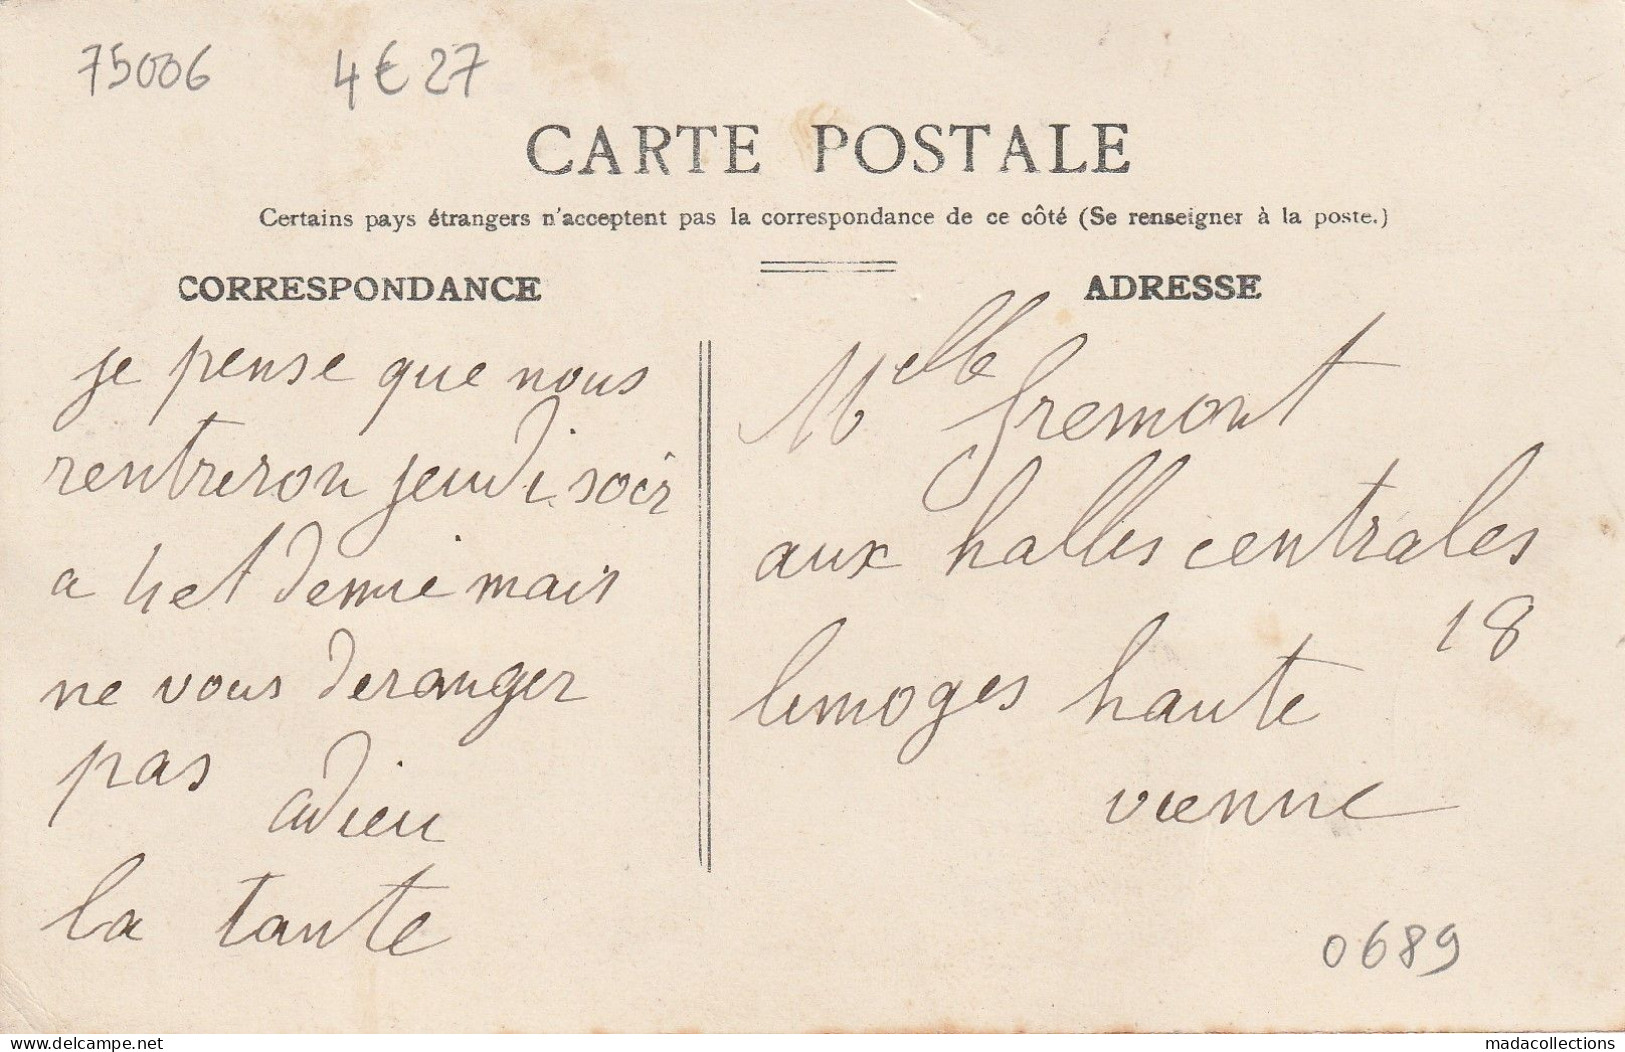 75006 4€27
CARTE POSTALE
Certains pays étrangers n'acceptent pas la correspondance de ce côté (Se renseigner à la poste.)
CORRESPONDANCE
je pense que nous
rentreron jeudi soir
a 4 et demie mais
ne vous deranger
pas
adieu
la tante
ADRESSE
Melle fremont
aux halles centrales
18
limoges haute
vienne
0689
delcampe.net
madacollections